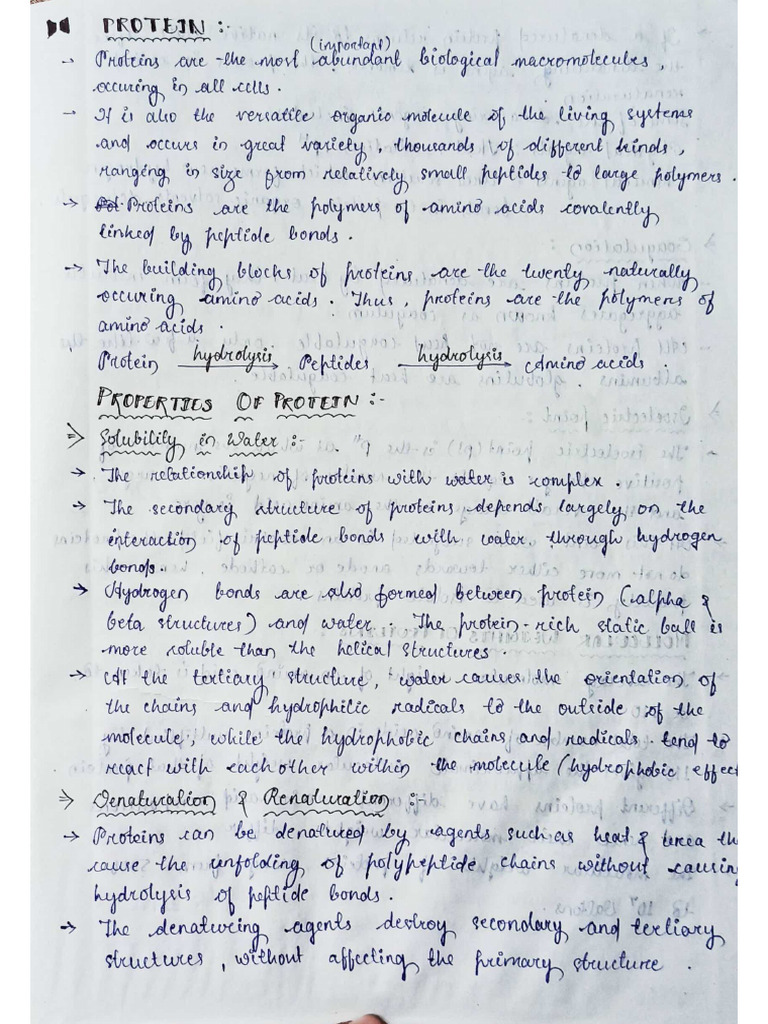 PROTEIN :-
(important)
→ Proteins are the most abundant biological macromolecules,
occuring in all cells.
→ It is also the versatile organic molecule of the living systems
and occurs in great variety, thousands of different kinds,
ranging in size from relatively small peptides to large polymers.
→ Proteins are the polymers of amino acids covalently
linked by peptide bonds.
→ The building blocks of proteins are the twenty naturally
occuring amino acids. Thus, proteins are the polymers of
amino acids.
Protein hydrolysis → Peptides hydrolysis → Amino acids.
PROPERTIES OF PROTEIN :-
⇒ Solubility in Water :-
→ The relationship of proteins with water is complex.
→ The secondary structure of proteins depends largely on the
interaction of peptide bonds with water through hydrogen
bonds.
→ Hydrogen bonds are also formed between protein (alpha &
beta structures) and water. The protein-rich static ball is
more soluble than the helical structures.
→ At the tertiary structure, water causes the orientation of
the chains and hydrophilic radicals to the outside of the
molecule, while the hydrophobic chains and radicals tend to
react with each other within the molecule (hydrophobic effect
⇒ Denaturation & Renaturation :-
→ Proteins can be denatured by agents such as heat & urea th
cause the unfolding of polypeptide chains without causing
hydrolysis of peptide bonds.
→ The denaturing agents destroy secondary and tertiary
structures, without affecting the primary structure.